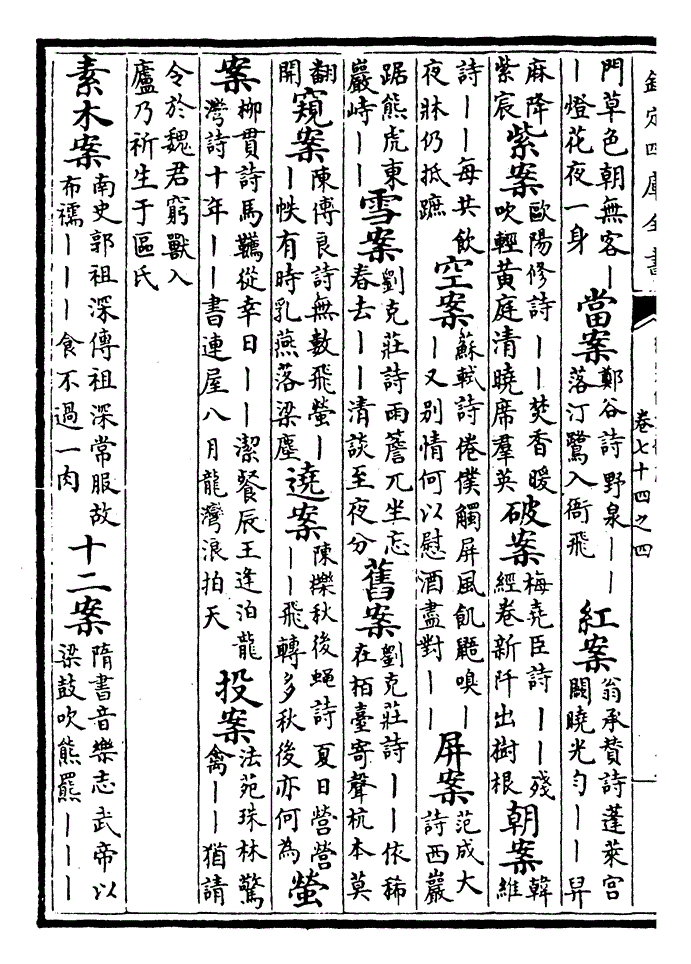 欽定四庫全書
卷七十四之四
門草色朝無客｜｜燈花夜一身 當案 鄭谷詩野泉｜｜落汀鷺入衙飛 紅案 翁承贊詩蓬萊宮闕曉光勻｜｜昇
麻降紫宸 紫案 歐陽修詩｜｜焚香暖吹輕黃庭清曉席羣英 破案 梅堯臣詩｜｜殘經卷新阡出樹根 朝案 韓維
詩｜｜每共飲夜牀仍抵蹠 空案 蘇軾詩倦僕觸屏風飢鼯嗅｜｜又別情何以慰酒盡對｜｜ 屏案 范成大詩西巖
踞熊虎東巖峙｜｜ 雪案 劉克莊詩雨簷兀坐忘春去｜｜清談至夜分 舊案 劉克莊詩｜｜依稀在栢臺寄聲杭本莫
翻開 窺案 陳傅良詩無數飛螢｜｜帙有時乳燕落梁塵 遶案 陳櫟秋後蝇詩夏日營營｜｜飛轉多秋後亦何為 螢
案 柳貫詩馬韉從幸日｜｜潔餐辰王逢泊龍灣詩十年｜｜書連屋八月龍灣浪拍天 投案 法苑珠林驚禽｜｜猶請
令於魏君窮獸入廬乃祈生于區氏
素木案 南史郭祖深傳祖深常服故布襦｜｜｜食不過一肉 十二案 隋書音樂志武帝以梁鼓吹熊羆｜｜｜